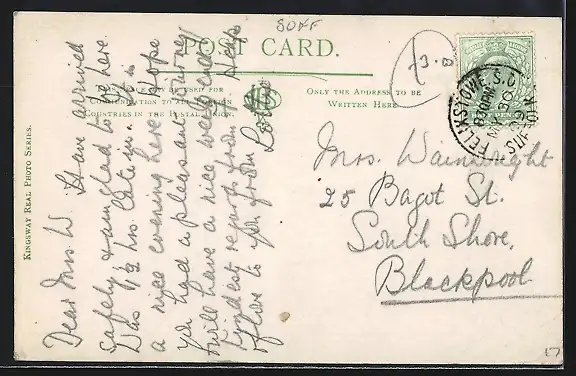 SUFF
POST CARD.
73.B
THIS SPACE MAY BE USED FOR
COMMUNICATION TO ALL FOREIGN
COUNTRIES IN THE POSTAL UNION.
ONLY THE ADDRESS TO BE
WRITTEN HERE
KINGSWAY REAL PHOTO SERIES.
FELIXSTOWE S.O
STATION
Dear Mrs W. Have arrived
safely & am glad to be here.
Was 1½ hrs. late in. It is
a nice evening here & hope
you had a pleasant journey
& will have a nice week end
Kindest regards from
of love to you from Lottie
Mrs. Wainwright
25 Bagot St.
South Shore,
Blackpool
17